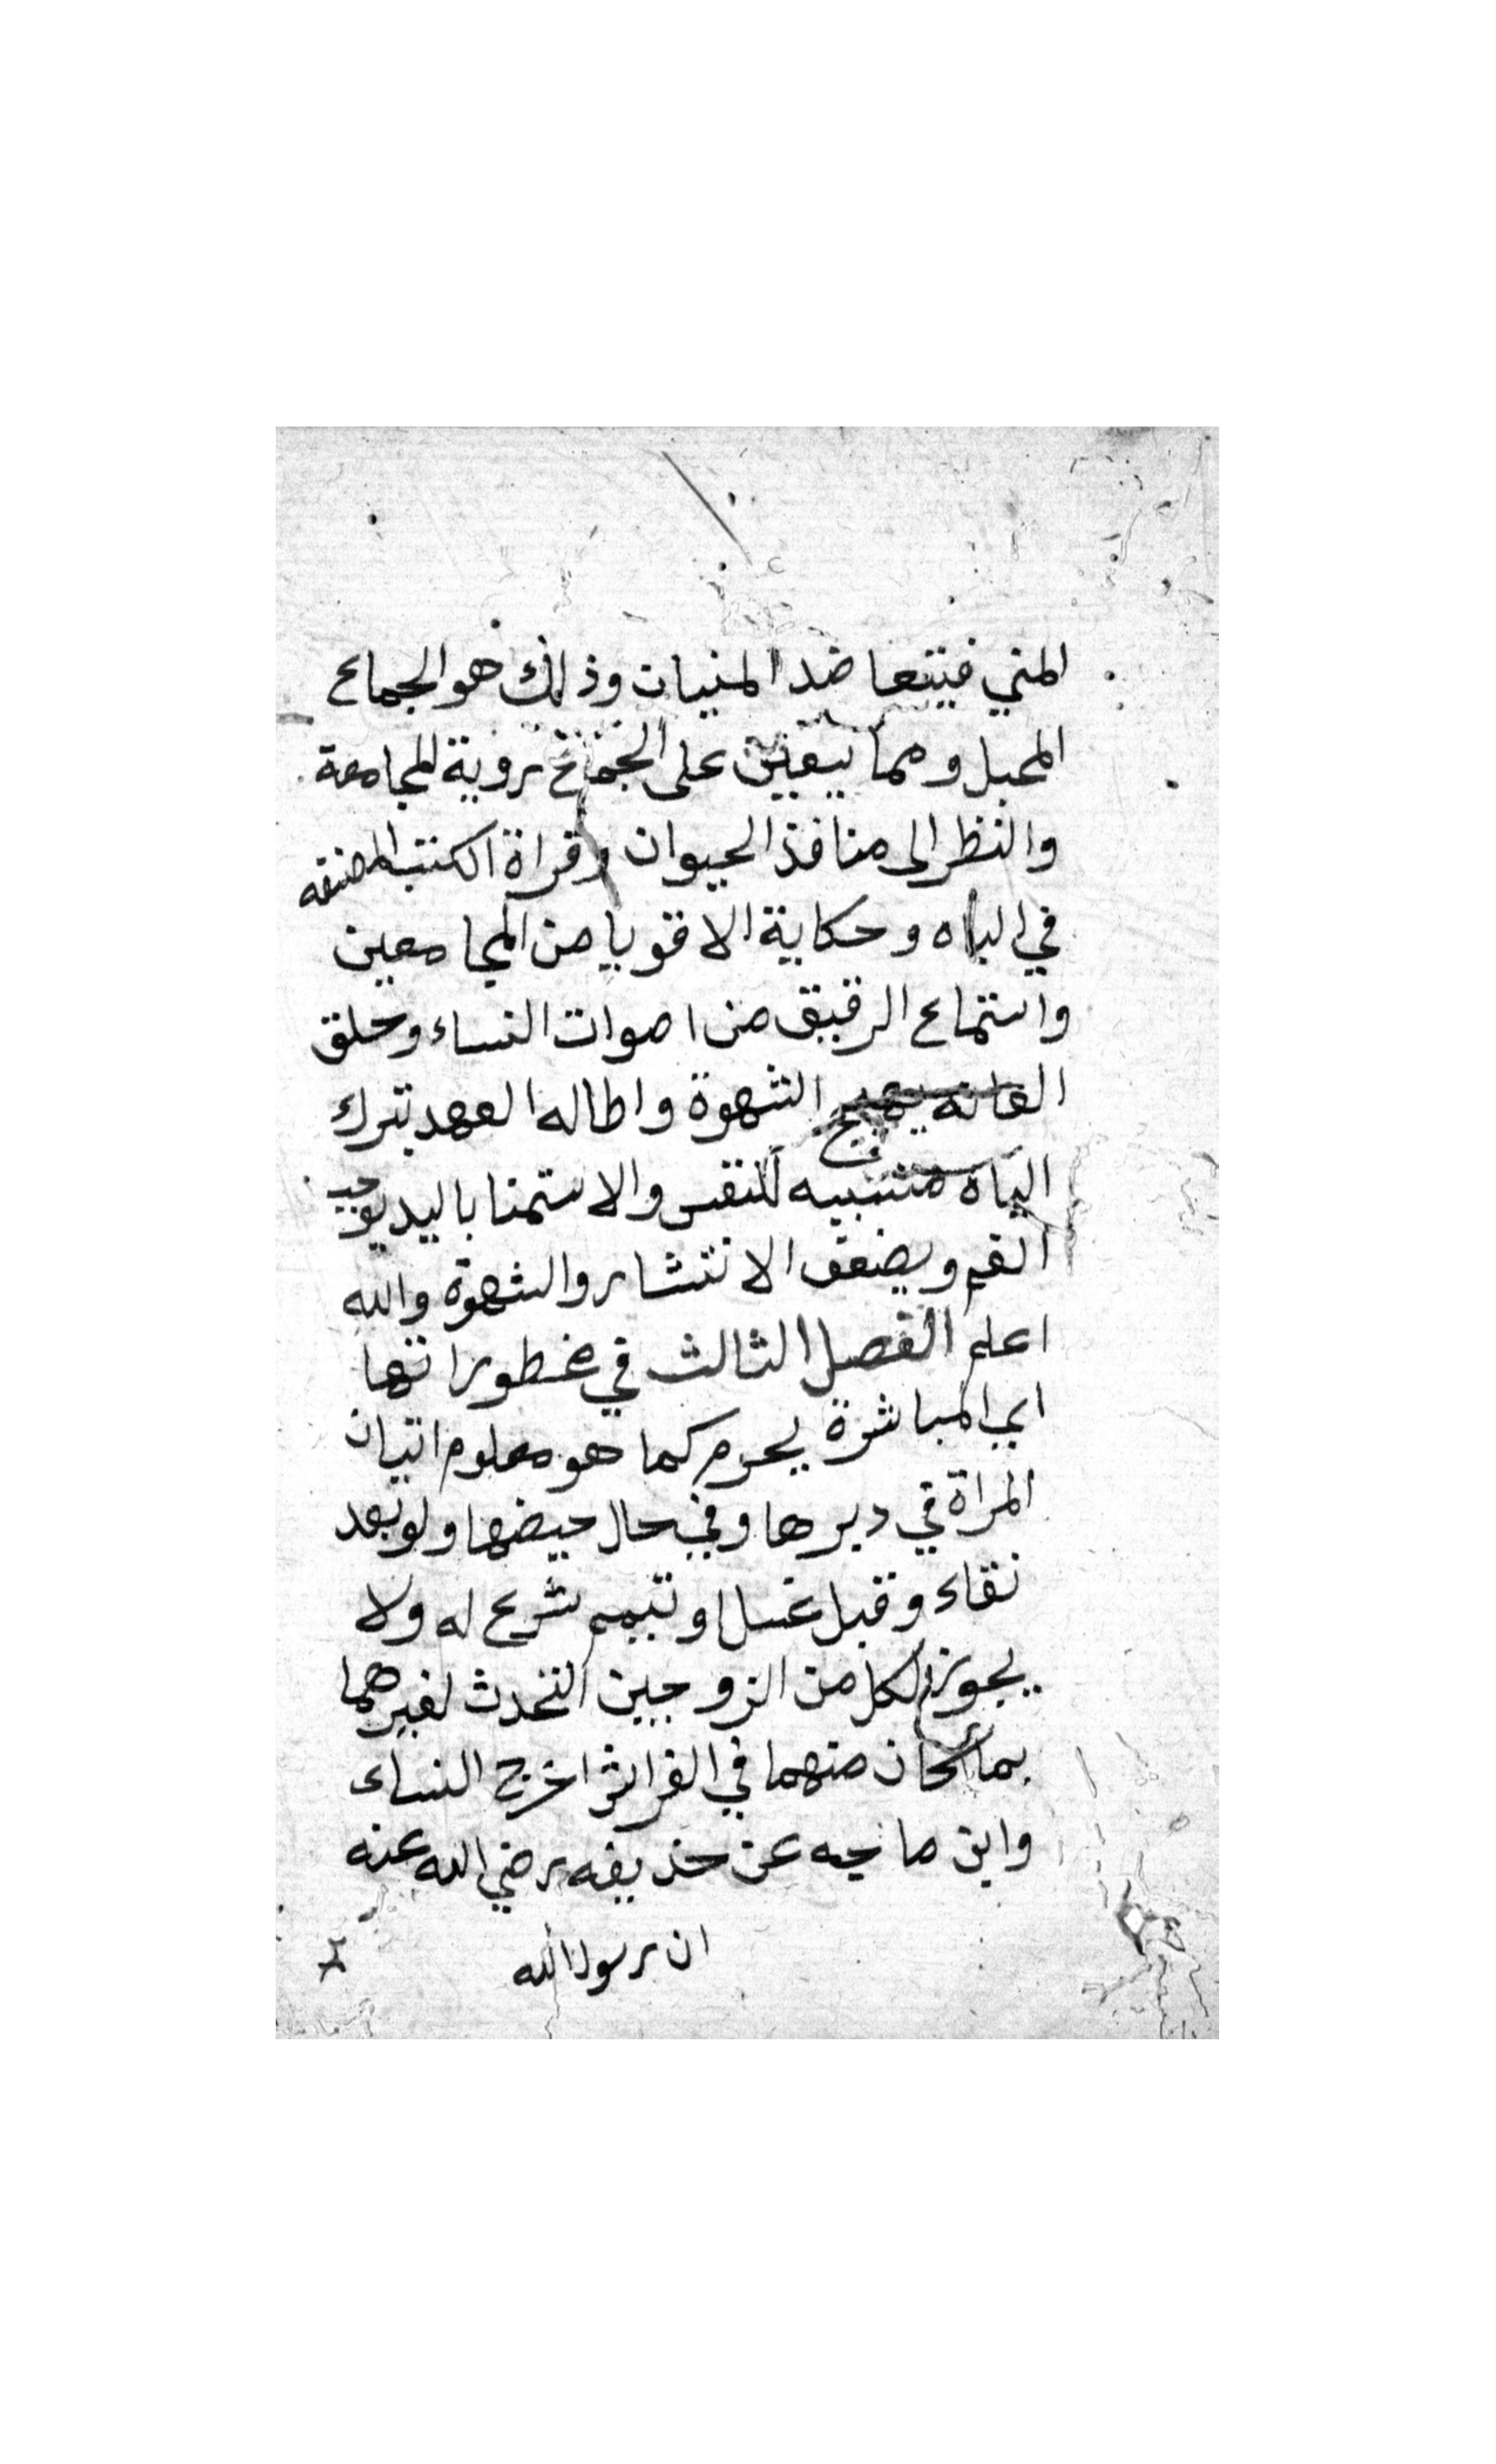 المني فيتعاضد المنيان وذلك هو الجماع
المحبل ومما يعين على الجماع روية المجامعة
والنظر الى منافذ الحيوان وقراة الكتب المصنفه
في الباه وحكاية الاقويا من المجامعين
واستماع الرقيق من اصوات النساء وحلق
العانه يهيج الشهوة واطاله العهد بترك
الباه للنفس والاستمنا باليد يوجب
الغم ويضعف الانتشار والشهوة والله
اعلم الفصل الثالث في محظوراتها
اي المباشرة يحرم كما هو معلوم اتيان
المراة في دبرها وفي حال حيضها ولو بعد
نقاء وقبل غسل او تيمم شرع له ولا
يجوز لكل من الزوجين التحدث لغيرهما
بما كان منهما في الفراش اخرج النساء
وابن ماجه عن حذيفه رضي الله عنه
ان رسول الله